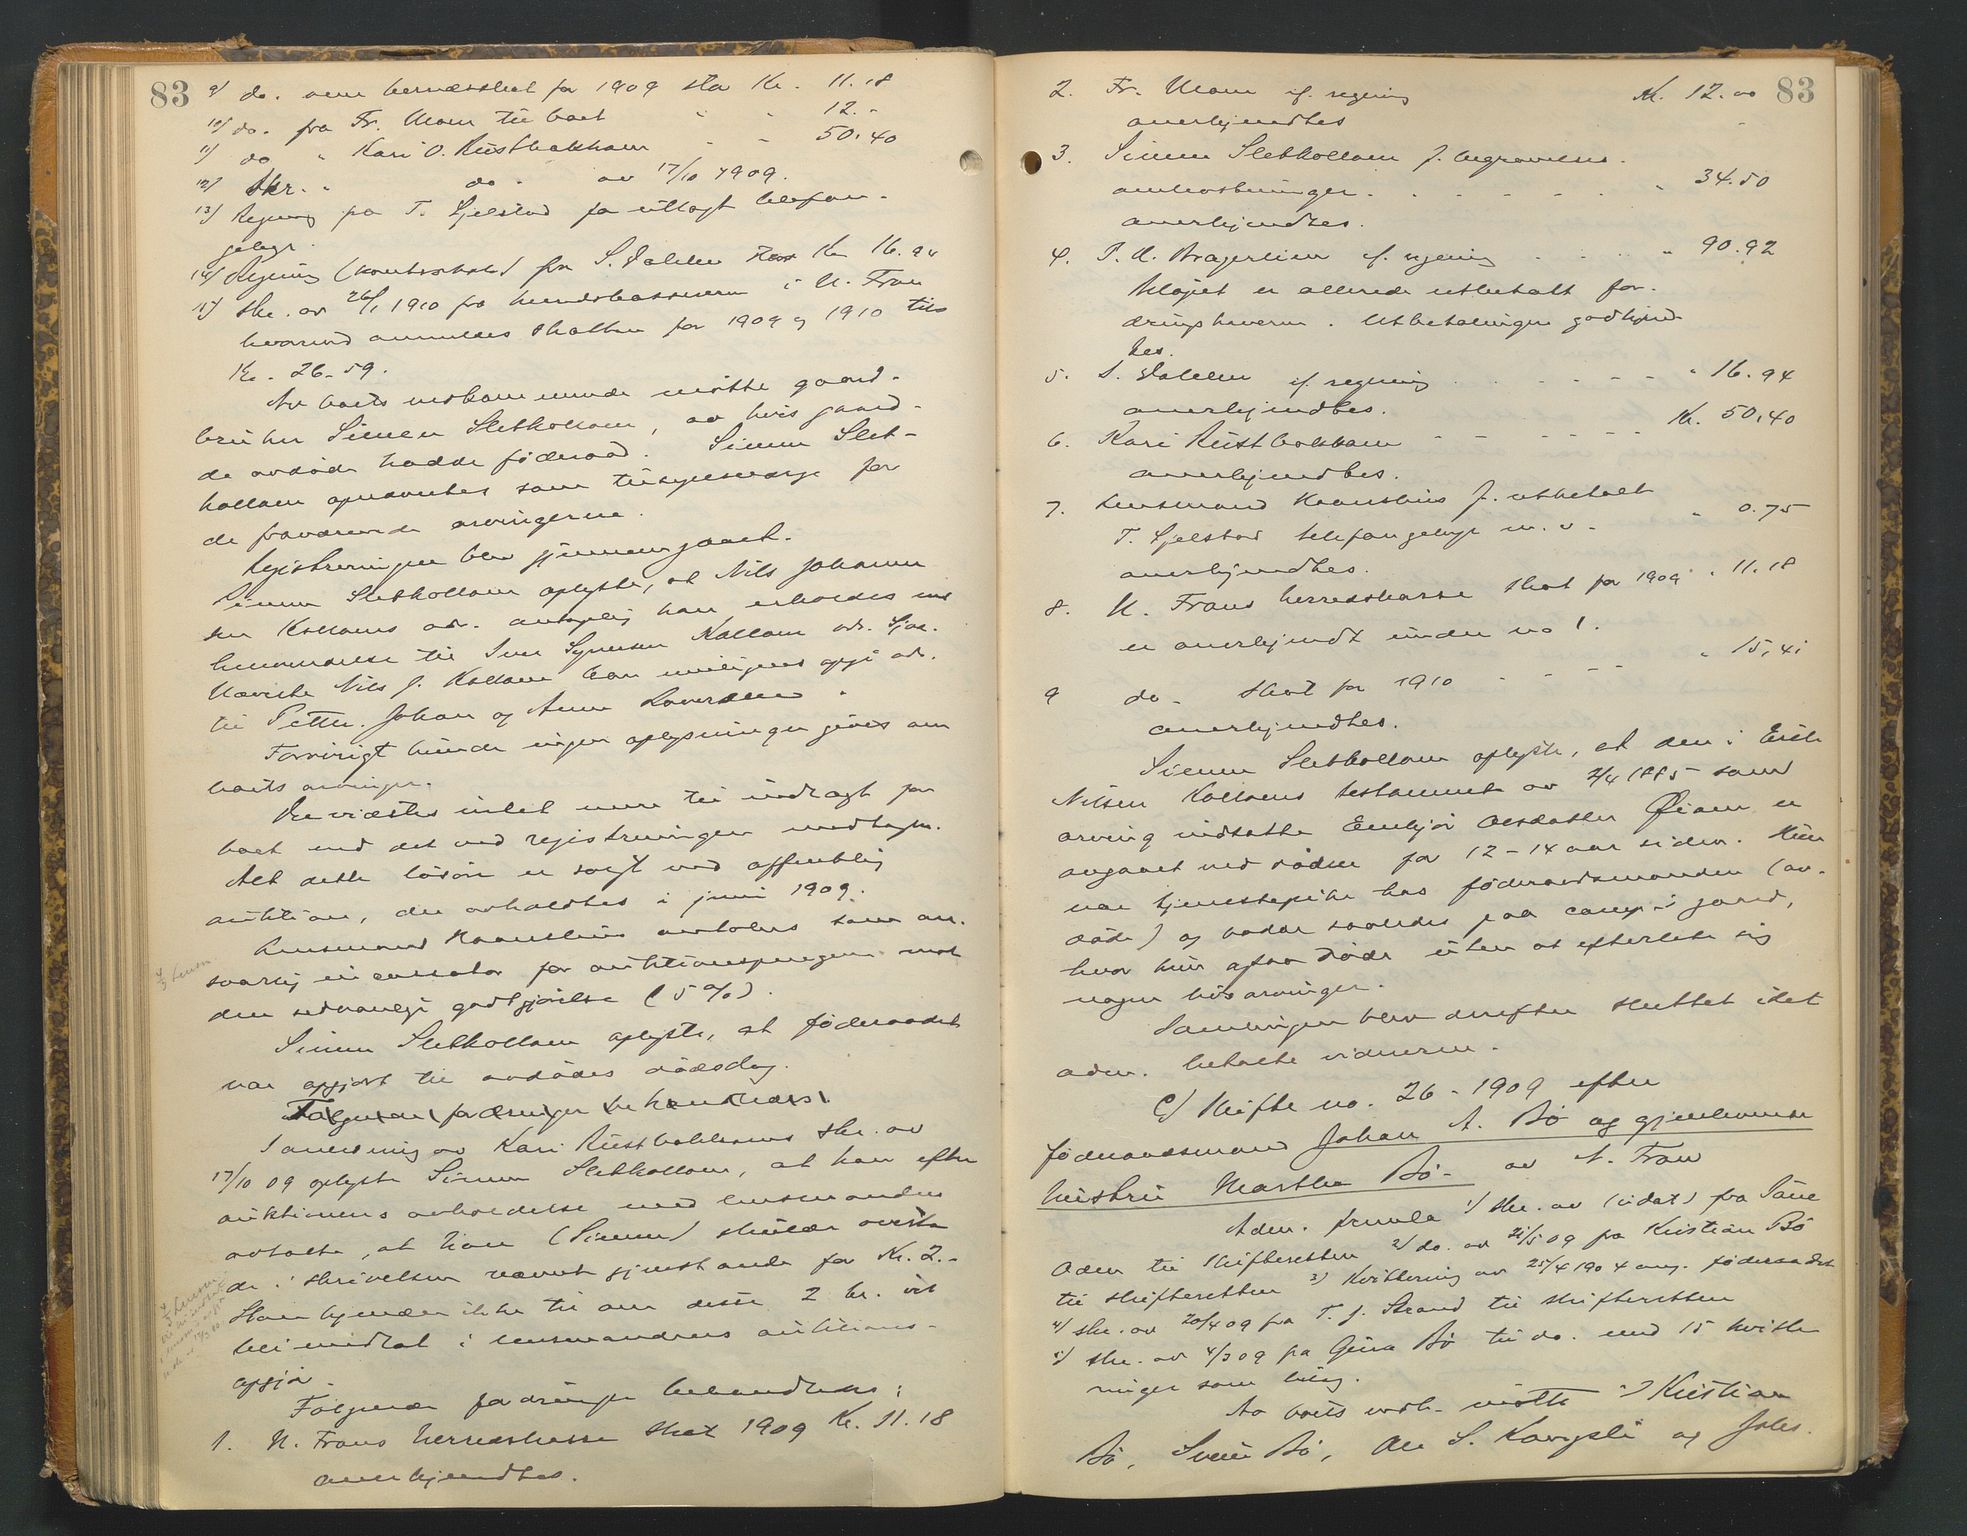 83
9) do. om herredsskat for 1909 stor Kr. 11.18
10) do. fra Fr. Moen til boet " " 12.-
11) do " Kari O. Rustbakken - - 50.40
12) Skr. " do - av 17/10 1909.
13) Regning fra T. Gjelstad for utlagt telefon-
gebyr.
14) Regning fra S. Dalelv stor Kr. 16.94
15) Skr. av 26/1 1910 fra herredskasseren i N. Fron
hvorved anmeldes skatten for 1909 og 1910 til
Kr. 26.59.
Av boets vedkommende møtte gaard-
bruker Simen Sletkollom, av hvis gaard-
de avdøde hadde føderaad. Simen Slet-
kollom opnævntes som tilsynsværge for
de fraværende arvingerne.
Registreringen blev gjennemgaaet.
Simen Sletkollom oplyste, at Nils Johanne
sen Kolloms adr. antagelig kan erholdes ved
henvendelse til Iver Syversen Kollom adr.
Nævnte Nils J. Kollom kan muligens opgi adr.
til Petter, Johan og Anne
Forøvrigt kunde ingen oplysninger gives om
boets arvinger.
Der vidstes intet mere til indtægt for
boet end det ved registreringen medtagne.
Alt dette løsøre er solgt ved offentlig
auktion, der avholdtes i juni 1909.
Lensmand Kaanshus antoges som an-
svarlig incassator for auktionspengene mot
den sedvanlige godtgjørelse (5%).
Simen Sletkollom oplyste, at føderaadet
var opgjort til avdødes dødsdag.
Følgende fordringer behandledes.
I anledning av Kari Rustbakkens skr. av
17/10 09 oplyste Simen Sletkollom, at han efter
auktionens avholdelse med lensmanden
avtalte, at han (Simen) skulde overta
de i skrivelsen nævnte gjenstande for Kr. 2.-
Han kjender ikke til om disse 2 kr. er
blit indtat i lensmandens auktions-
opgjør.
Følgende fordringer behandledes:
1. N. Frons herredskasse skat 1909 Kr. 11.18
anerkjendtes.
83
2. Fr. Moen if. regning Kr. 12.00
anerkjendtes
3. Simen Sletkollom f. begravelses-
omkostninger . . . . . " 34.50
anerkjendtes.
4. P. A. Bragerlien if. regning . . . . " 90.92
Beløpet er allerede utbetalt for-
dringshaveren. Utbetalingen godkjend-
tes.
5. S. Dalelv if. regning . . . . . " 16.94
anerkjendtes.
6. Kari Rustbakken - - - - - Kr. 50,40
anerkjendtes.
7. Lensmand Kaanshus f. utbetalt
T. Gjelstad telefongebyr m. v. " 0.75
anerkjendtes.
8. N. Frons herredskasse skat for 1909 " 11.18
er anerkjendt under no 1.
9 do - skat for 1910 - - - - " 15,41
anerkjendtes.
Simen Sletkollom oplyste, at den i Erik
Nilsen Kolloms testament av 2/4 1885 som
arving indsatte Embjør Olsdatter Øiom er
avgaaet ved døden for 12-14 aar siden. Hun
var tjenestepike hos føderaadsmanden (av-
døde) og var saaledes paa samme gaard,
hvor hun ogsaa døde uten at efterlate sig
nogen livsarvinger.
Samlingen blev derefter sluttet idet
adm. betalte vidnerne.
C) Skifte no. 26 - 1909 efter
føderaadsmand Johan A. Bø og gjenlevende
hustru Marthe Bø - av N. Fron
Adm. fremla 1) skr. av (udat) fra
til skifteretten 2) do. av 21/5 09 fra Kristian Bø
til skifteretten 3) Kvittering av 25/4 1904 ang. føderaadet
4) skr. av 20/4 09 fra T. J. Strand til skifteretten
5) skr. av 4/3 09 fra Gura Bø til do. med 15 kvitte
ringer som bilag.
Av boets vedk. møtte 1) Kristian
Bø, Svein Bø, Ole S. Kongsli og Johs.